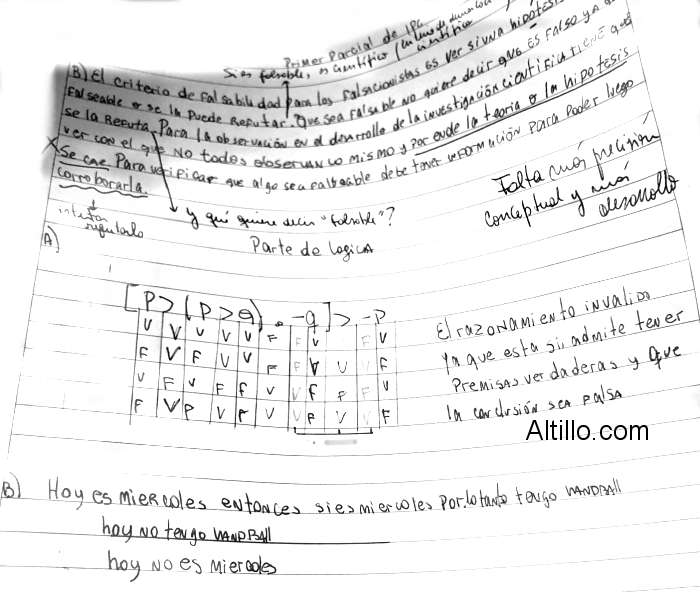 Primer Parcial de IPC
Si es falsable, es científico
(B) El criterio de falsabilidad para los falsacionistas es ver si una hipótesis
falseable o se la puede refutar. Que sea falsable no quiere decir que es falso ya que
se la refuta. Para la observación en el desarrollo de la investigación científica tiene que
ver con el que no todos observan lo mismo y por ende la teoría o la hipotesis
X se cae Para verificar que algo sea falseable debe tener informución para Poder luego
corroborarla.
intentar
refutarlo
y qué quiere decir "falsable"?
Falta más precisión
conceptual y más
desarrollo
A)
Parte de logica
[P > (P > q) . -q] > -P
V V V V V F F V F V
F V F V V F F V V V F
V F V F F V V F F F V
F V F V F V V F V V F
El razonamiento invalido
Ya que esta si admite tener
Premisas verdaderas y que
la conclusión sea falsa
Altillo.com
B) Hoy es miercoles entonces si es miercoles por.lotanto tengo HANDBAll
hoy NO tengo HANDBAll
hoy NO es miercoles